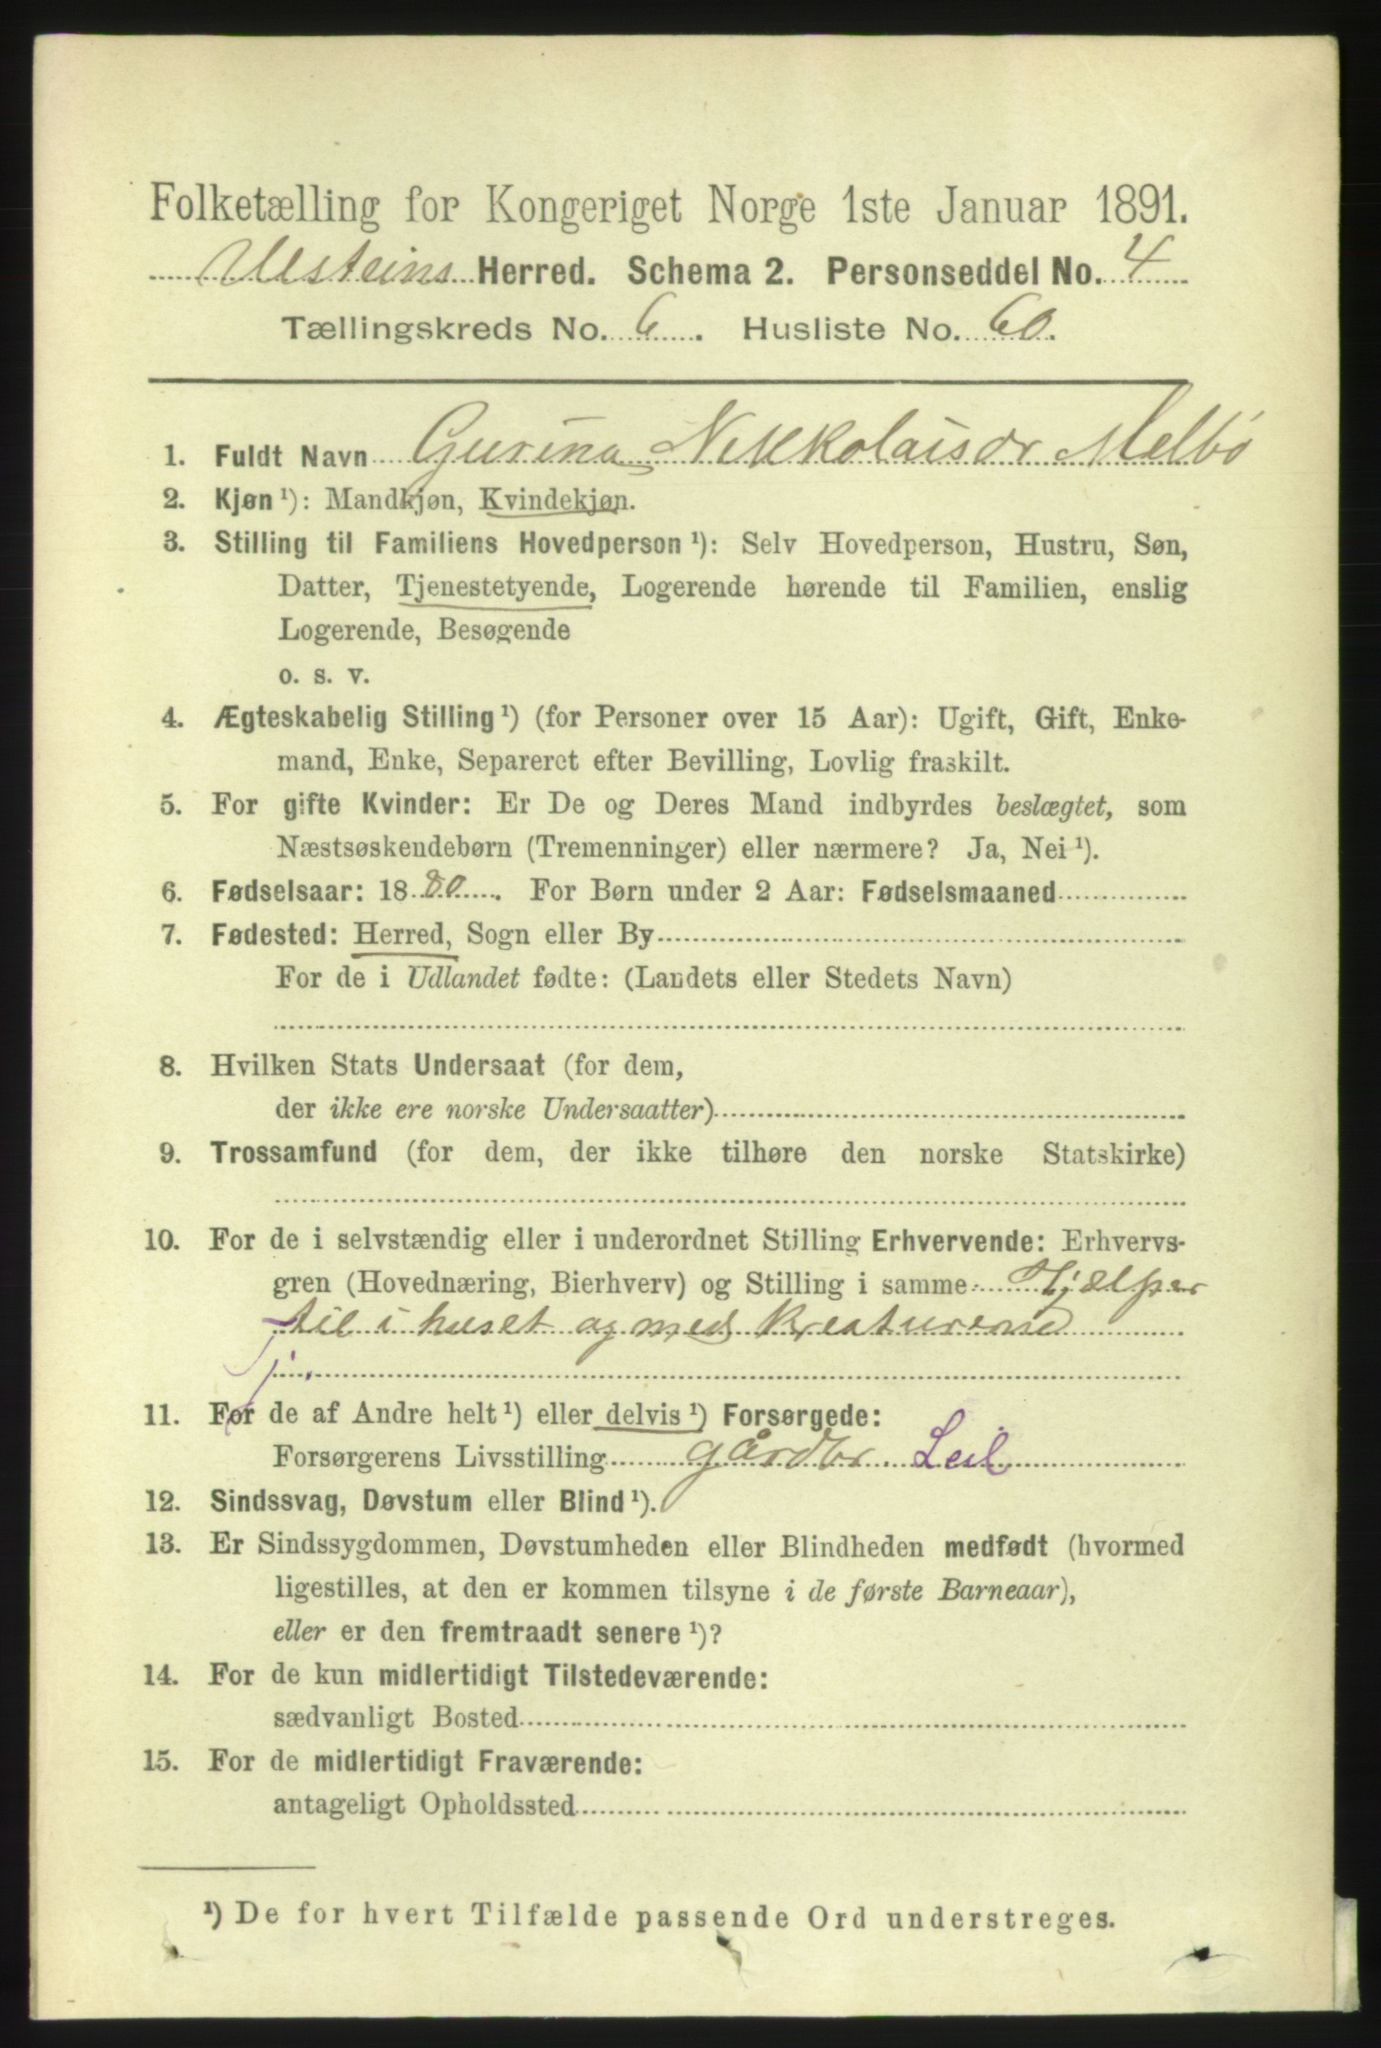 Folketælling for Kongeriget Norge 1ste Januar 1891.
Ulsteins Herred. Schema 2. Personseddel No. 4
Tællingskreds No. 6. Husliste No. 60.
1. Fuldt Navn Gurina Nikkolaisdr Melbö
2. Kjøn ¹): Mandkjøn, Kvindekjøn.
3. Stilling til Familiens Hovedperson ¹): Selv Hovedperson, Hustru, Søn,
Datter, Tjenestetyende, Logerende hørende til Familien, enslig
Logerende, Besøgende
o. s. v.
4. Ægteskabelig Stilling ¹) (for Personer over 15 Aar): Ugift, Gift, Enke-
mand, Enke, Separeret efter Bevilling, Lovlig fraskilt.
5. For gifte Kvinder: Er De og Deres Mand indbyrdes beslægtet, som
Næstsøskendebørn (Tremenninger) eller nærmere? Ja, Nei ¹).
6. Fødselsaar: 1880. For Børn under 2 Aar: Fødselsmaaned
7. Fødested: Herred, Sogn eller By
For de i Udlandet fødte: (Landets eller Stedets Navn)
8. Hvilken Stats Undersaat (for dem,
der ikke ere norske Undersaatter)
9. Trossamfund (for dem, der ikke tilhøre den norske Statskirke)
10. For de i selvstændig eller i underordnet Stilling Erhvervende: Erhvervs-
gren (Hovednæring, Bierhverv) og Stilling i samme Hjælper
til i huset og med kreaturene
Tj.
11. For de af Andre helt ¹) eller delvis ¹) Forsørgede:
Forsørgerens Livsstilling gårdbr. Leil
12. Sindssvag, Døvstum eller Blind ¹).
13. Er Sindssygdommen, Døvstumheden eller Blindheden medfødt (hvormed
ligestilles, at den er kommen tilsyne i de første Barneaar),
eller er den fremtraadt senere ¹)?
14. For de kun midlertidigt Tilstedeværende:
sædvanligt Bosted
15. For de midlertidigt Fraværende:
antageligt Opholdssted
¹) De for hvert Tilfælde passende Ord understreges.